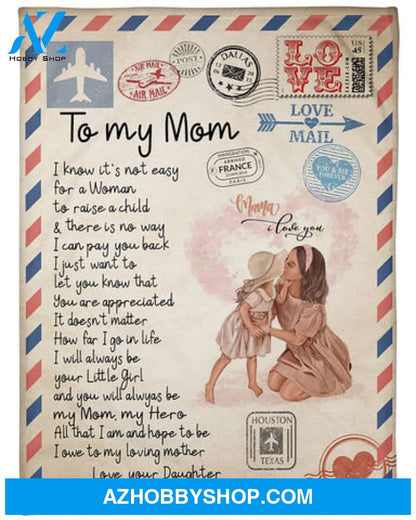 AZ
HOBBY SHOP
AIR MAIL
AIR MAIL
POST
DALLAS
LOVE
US
45
LOVE
MAIL
To my Mom
IMMIGRATION
ARRIVED
FRANCE
PARIS
YOU & ME
FOREVER
Mama
i love you
I know it's not easy
for a Woman
to raise a child
& there is no way
I can pay you back
I just want to
let you know that
You are appreciated
It doesn't matter
How far I go in life
I will always be
your Little Girl
and you will alwyas be
my Mom, my Hero
All that I am and hope to be
I owe to my loving mother
Love, your Daughter
HOUSTON
TEXAS
AZHOBBYSHOP.COM